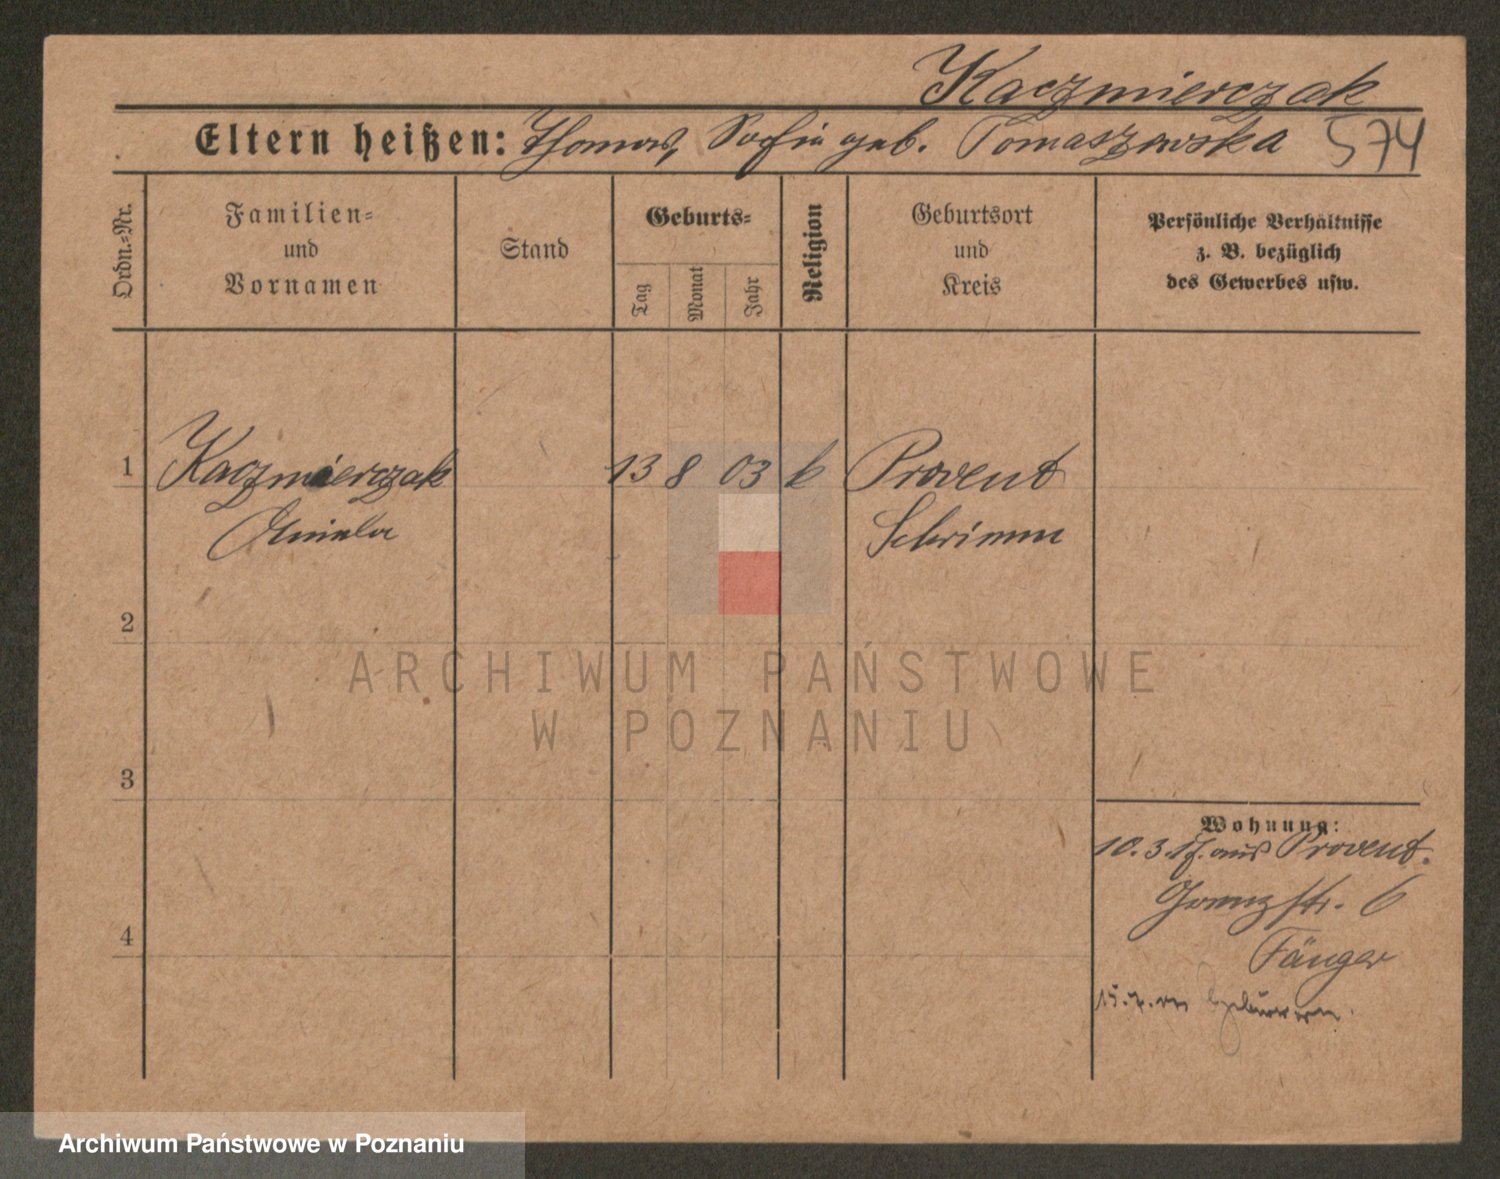 Kaczmierczak
Eltern heißen: Thomas, Sofia geb. Tomaszewska 574
Ordn.-Nr.
Familien-
und
Vornamen
Stand
Geburts-
Tag
Monat
Jahr
Religion
Geburtsort
und
Kreis
Persönliche Verhältnisse
z. B. bezüglich
des Gewerbes usw.
1 Kaczmierczak 13 8 03 k Provent
Schrimm
2
ARCHIWUM PAŃSTWOWE
W POZNANIU
3
Wohnung:
10. 3. 17. aus Provent.
Grenzstr. 6
4
Fänger
15.
Archiwum Państwowe w Poznaniu